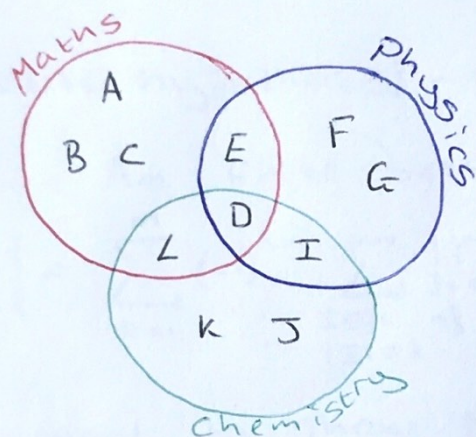 Maths
Physics
A
F
B C E
G
D
L I
K J
Chemistry